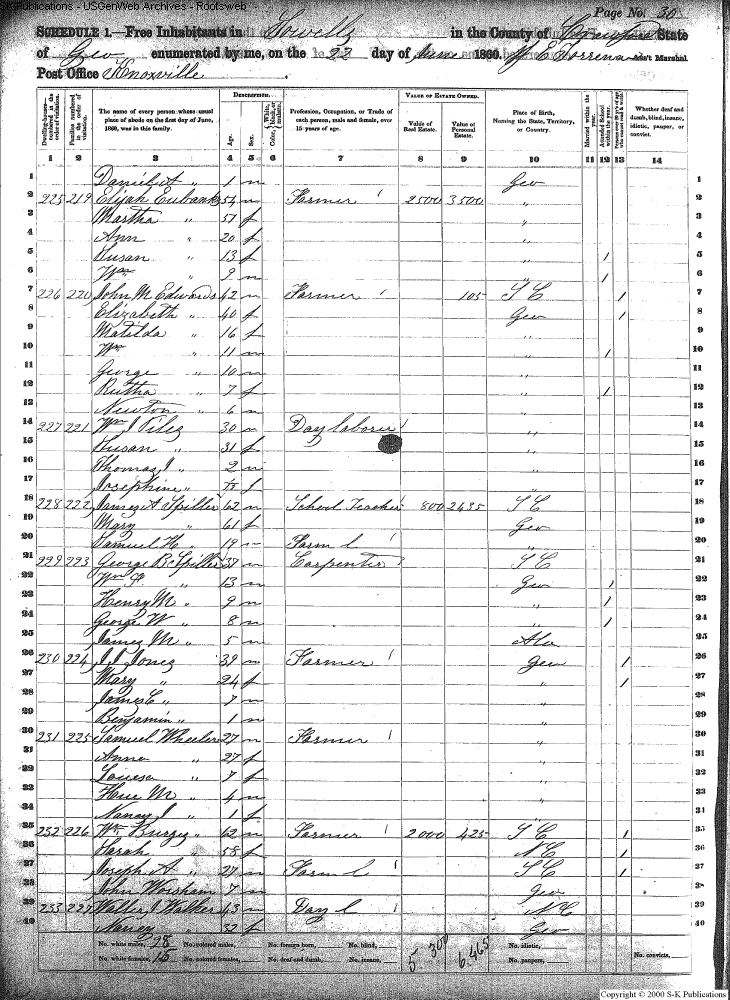 S-K Publications - USGenWeb Archives - Rootsweb
Page No. 30
SCHEDULE 1.—Free Inhabitants in Lowells in the County of Crawford State
of Geo enumerated by me, on the 22 day of June 1860. Ass't Marshal
Post Office Knoxville
Dwelling-houses—numbered in the order of visitation.
Families numbered in the order of visitation.
The name of every person whose usual place of abode on the first day of June, 1860, was in this family.
Description.
Age.
Sex.
Color, White, black, or mulatto.
Profession, Occupation, or Trade of each person, male and female, over 15 years of age.
Value of Estate Owned.
Value of Real Estate.
Value of Personal Estate.
Place of Birth, Naming the State, Territory, or Country.
Married within the year.
Attended School within the year.
Whether deaf and dumb, blind, insane, idiotic, pauper, or convict.
1 2 3 4 5 6 7 8 9 10 11 12 13 14
1 Daniel A " 1 m Geo 1
2 225 219 Elijah Eubanks 54 m Farmer / 2500 3500 " 2
3 Martha " 57 f " 3
4 Ann " 20 f " 4
5 Susan " 13 f " / 5
6 Wm " 9 m " / 6
7 226 220 John M Edwards 42 m Farmer / 105 S C / 7
8 Elizabeth " 40 f Geo / 8
9 Matilda " 16 f " 9
10 Wm " 11 m " / 10
11 George " 10 m " 11
12 Rutha " 7 f " / 12
13 Newton " 6 m " 13
14 227 221 Wm J Pilez 30 m Day laborer / " 14
15 Susan " 31 f " 15
16 Thomas J " 2 m " 16
17 Josephine " f " 17
18 228 222 James A Spiller 62 m School Teacher / 800 2435 S C 18
19 Mary " 61 f Geo 19
20 Samuel H " 19 m Farm l / " 20
21 229 223 George B Spiller 39 m Carpenter S C 21
22 Wm P " 13 m Geo / 22
23 Henry M " 9 m " / 23
24 George W " 8 m " / 24
25 James M " 5 m Ala 25
26 230 224 J J Jones 39 m Farmer / Geo / 26
27 Mary " 24 f " / 27
28 James C " 7 m " 28
29 Benjamin " 1 m " 29
30 231 225 Samuel Wheeler 27 m Farmer / " 30
31 Anna " 27 f " 31
32 Louisa " 7 f " 32
33 Hue M " 4 m " 33
34 Nancy J " 1 f " 34
35 232 226 Wm Burgez " 62 m Farmer / 2000 425 S C / 35
36 Sarah " 58 f N C / 36
37 Joseph A " 27 m Farm l / S C / 37
38 John Worsham 7 m Geo 38
39 233 227 Walter J Walker 43 m Day l / N C 39
40 Nancy " 32 f Geo 40
No. white males, 28 No. colored males, No. foreign born, No. blind, 5 300 6.465 No. idiotic,
No. white females, 15 No. colored females, No. deaf and dumb, No. insane, No. paupers, No. convicts,
Copyright © 2000 S-K Publications